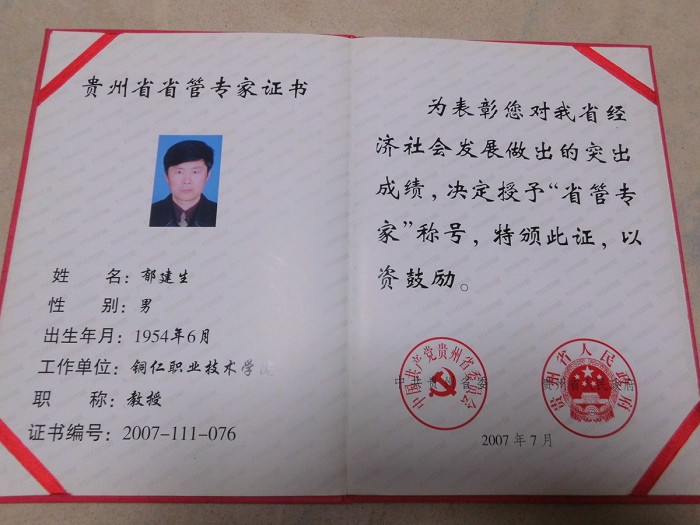 贵州省省管专家证书
姓 名：郁建生
性 别：男
出生年月：1954年6月
工作单位：铜仁职业技术学院
职 称：教授
证书编号：2007-111-076
为表彰您对我省经
济社会发展做出的突出
成绩，决定授予“省管专
家”称号，特颁此证，以
资鼓励。
中国共产党贵州省委员会
中共贵州省委
贵州省人民政府
2007年7月